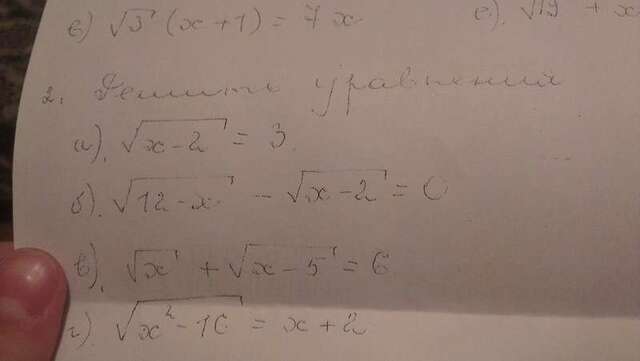 в) √3 (x+1) = 7x е). √19 + x
2. Решить уравнения
а). √(x-2) = 3
б). √(12-x) - √(x-2) = 0
в). √x + √(x-5) = 6
г). √(x²-16) = x+2